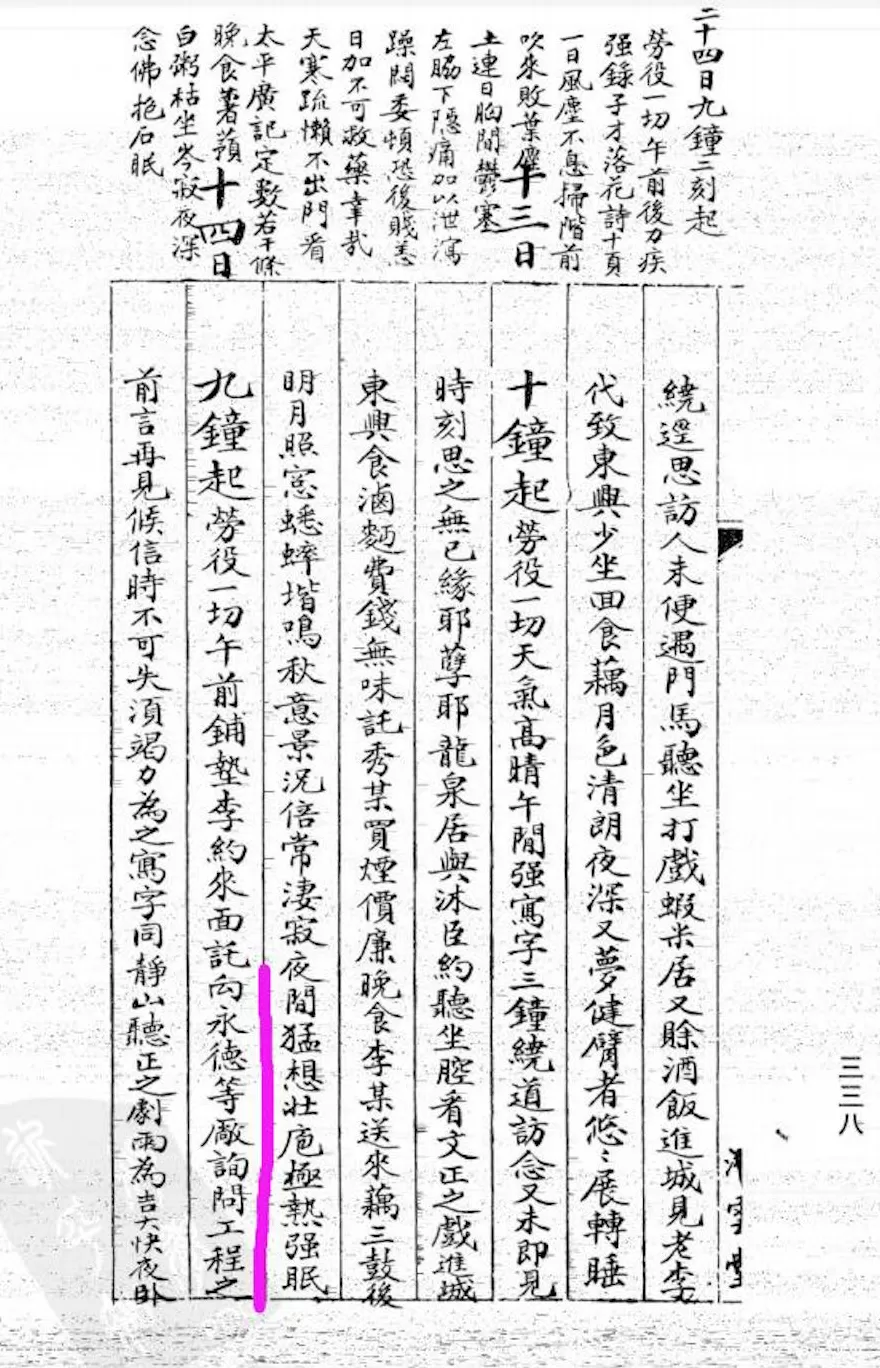 二十四日九鐘三刻起
勞役一切午前後力疾
强錄子才落花詩十頁
一日風塵不息掃階前
吹來敗葉塵
土連日胸間鬱塞
左脇下隱痛加以泄瀉
躁悶委頓恐後賤恙
日加不可救藥幸哉
天寒疏懶不出門看
太平廣記定數若干條
晚食薯蕷
白粥枯坐岑寂夜深
念佛抱石眠
繞逕思訪人未便遇門馬聽坐打戲蝦米居又賒酒飯進城見老李
代致東興少坐面食藕月色清朗夜深又夢健臂者悠〻展轉睡
十三日
十鐘起勞役一切天氣高晴午間强寫字三鐘繞道訪念又未即見
時刻思之無已緣耶孽耶龍泉居與沐臣約聽坐腔看文正之戲進城
東興食滷麪費錢無味託秀某買煙價廉晚食李某送來藕三鼓後
明月照窓蟋蟀堦鳴秋意景況倍常淒寂夜間猛想壯庖極熱强眠
十四日
九鐘起勞役一切午前鋪墊李約來面託向永德等廠詢問工程之
前言再見候信時不可失須竭力為之寫字同靜山聽正之劇雨為吉大快夜卧
三三八